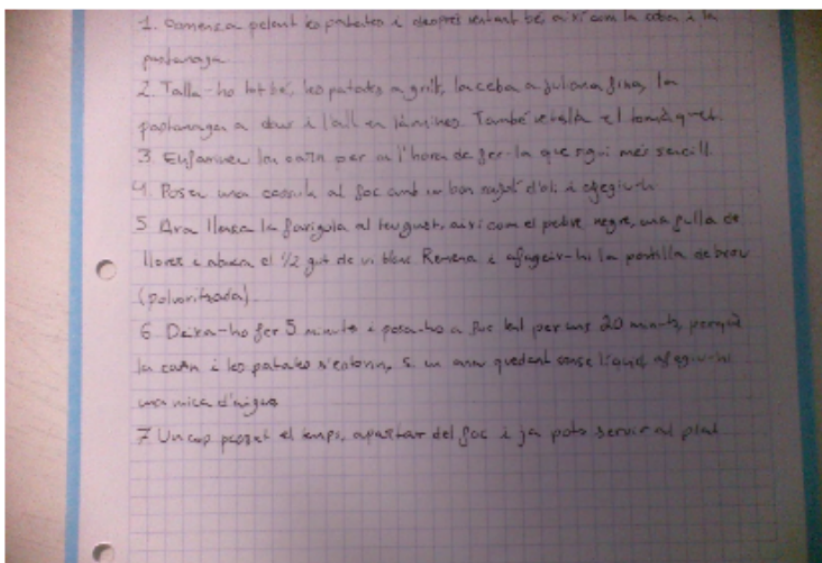 1. Comença pelant les patates i després rentant bé, així com la ceba i la
pastanaga.
2. Talla-ho tot bé, les patates a gril, la ceba a juliana fina, la
pastanaga a daus i l'all en làmines. També ratlla el tomàquet.
3. Enfarinem la carn per a l'hora de fer-la que sigui més senzill.
4. Posa una cassola al foc amb un bon rajol d'oli i afegiu-h
5 Ara llença la farigola al teu gust, així com el pebre negre, una fulla de
llorer i aboca el 1/2 got de vi blanc. Remena i afegeix-hi la pastilla de brou
(polvoritzada).
6 Deixa-ho fer 5 minuts i posa-ho a foc lent per uns 20 minuts, perquè
la carn i les patates s'estovin, Si un anar quedant sense líquid, afegiu-hi
una mica d'aigua
7 Un cop passat el temps, apartar del foc i ja pots servir al plat